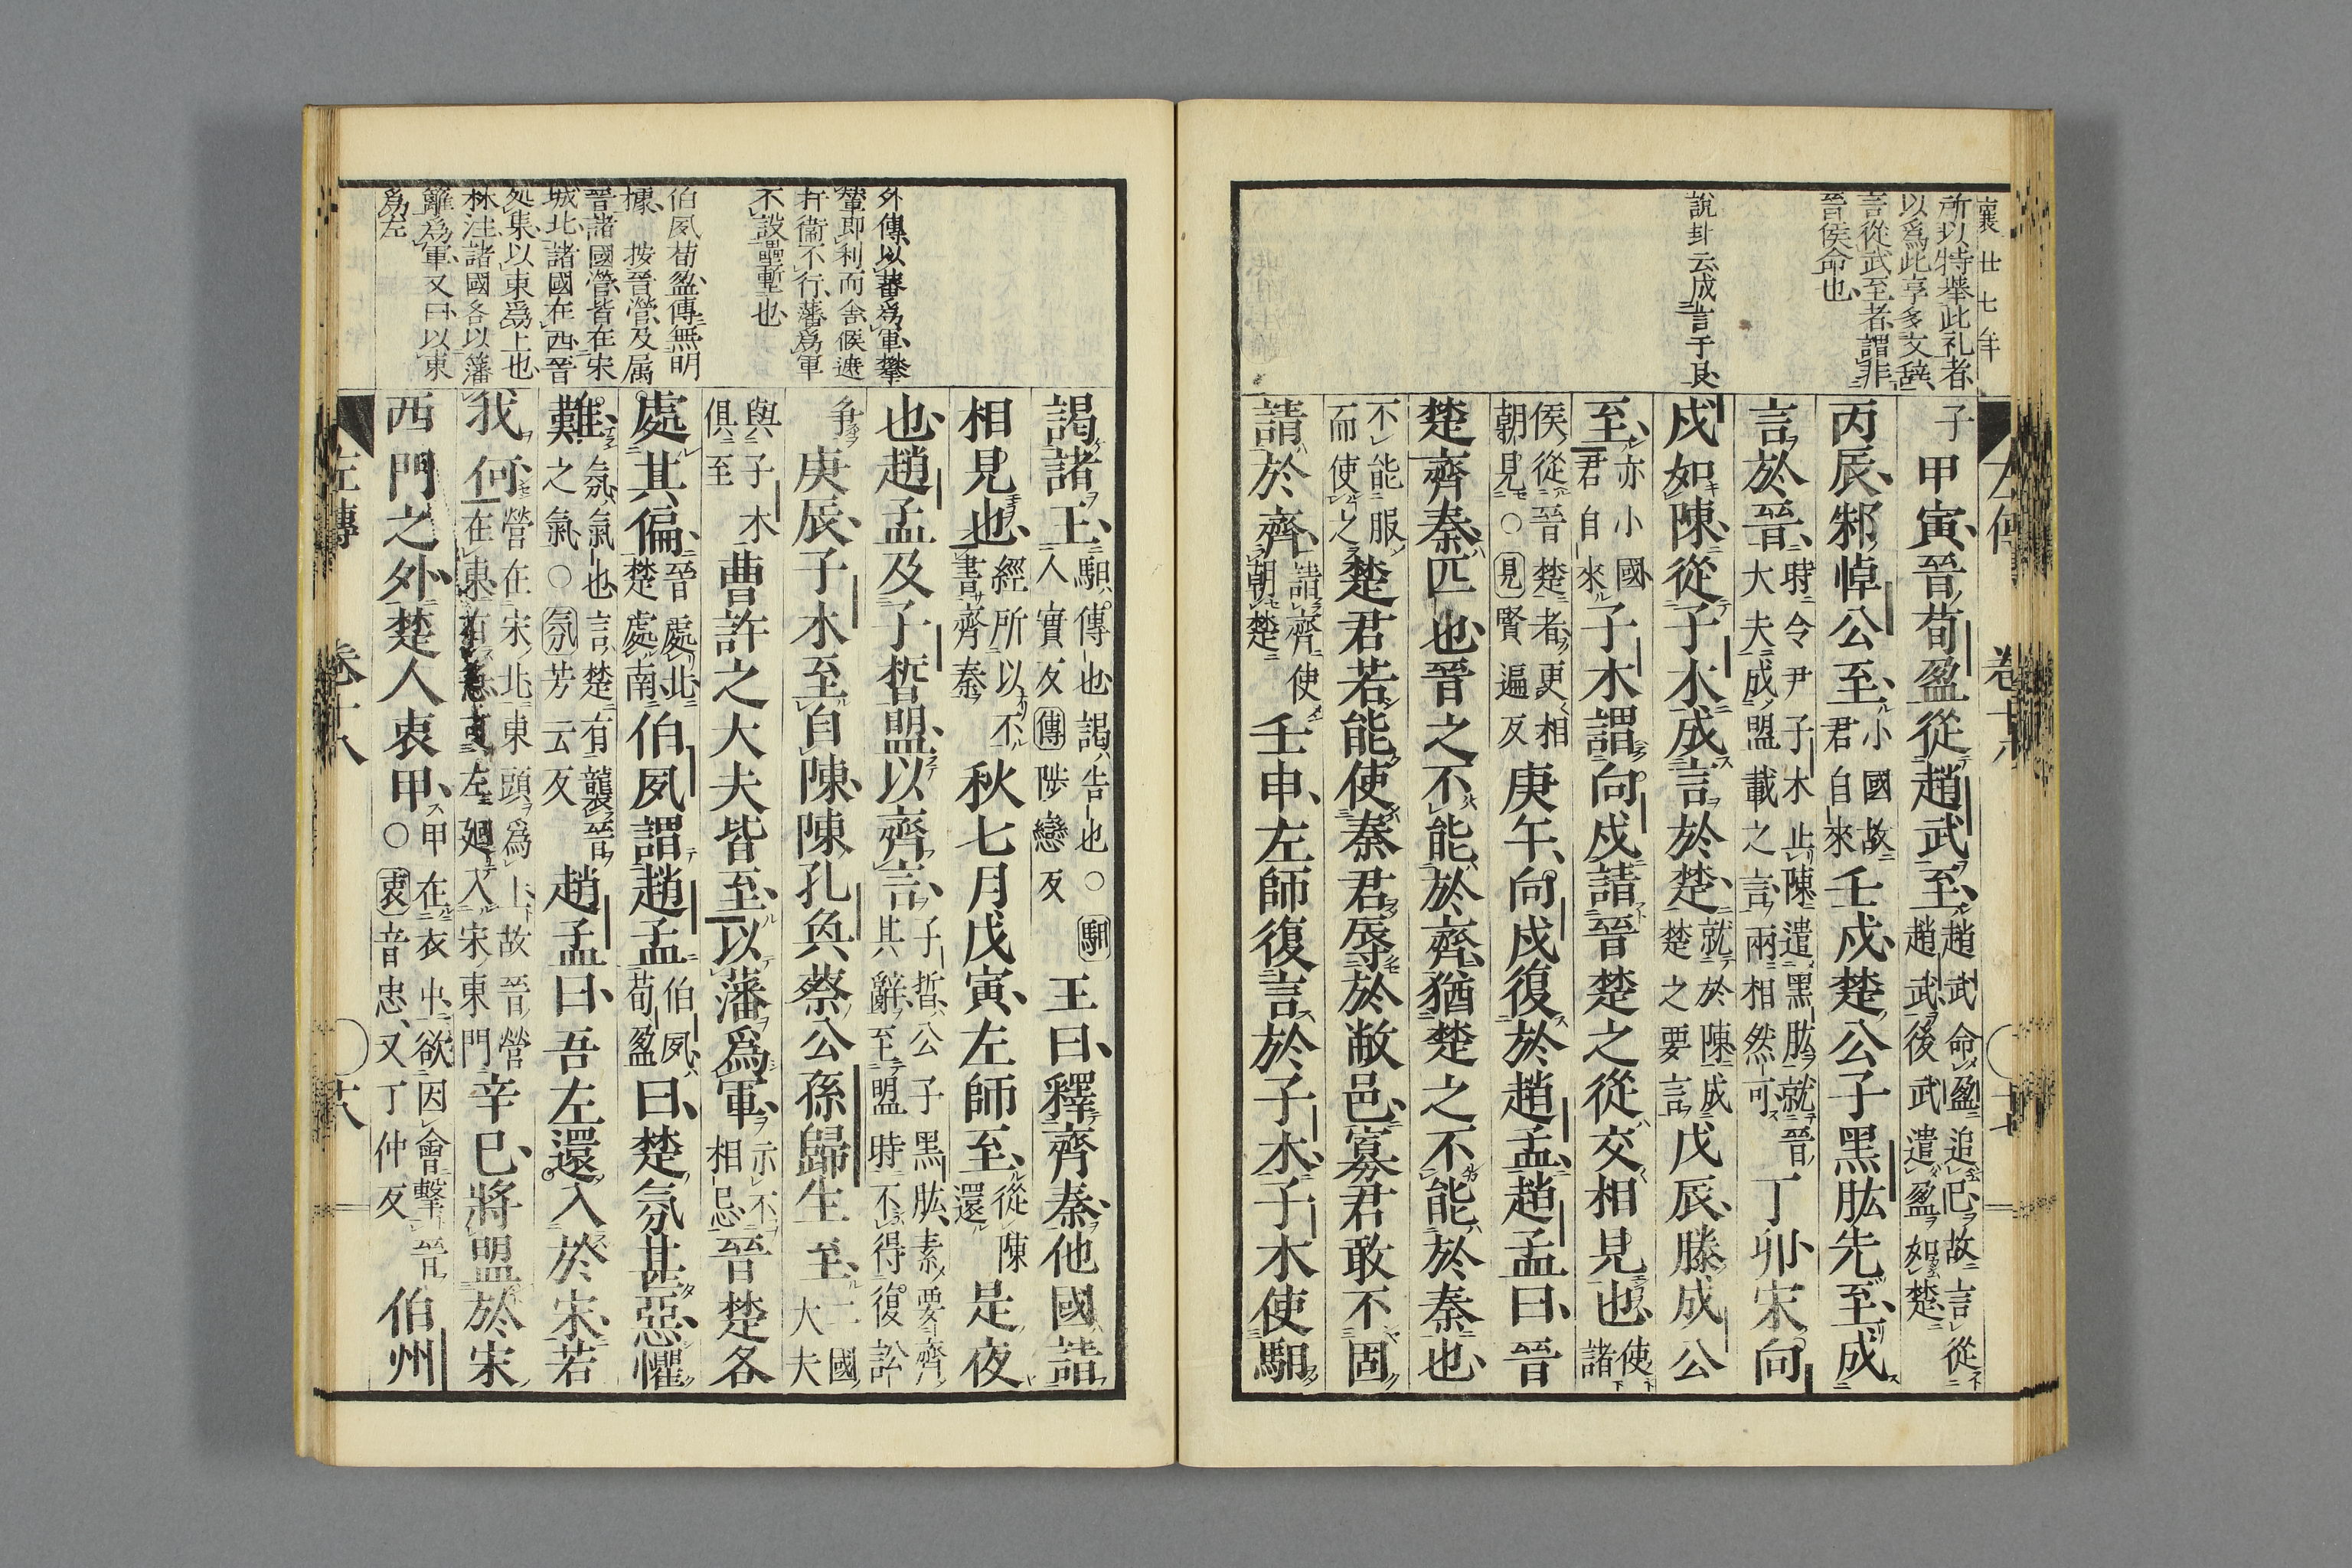 襄廿七年
所以特舉此礼者
以爲此享多文辞
言從武至者謂非
晉侯命也
說卦云成言于艮
子甲寅晉荀盈從趙武至趙武命盈追已故言從趙武後武遣盈如楚
丙辰邾悼公至小國故君自來壬戌楚公子黑肱先至成
言於晉時令尹子木止陳遣黑肱就晉大夫成盟載之言兩相然可丁卯宋向
戌如陳從子木成言於楚就於陳成楚之要言戊辰滕成公
至亦小國君自來子木謂向戌請晉楚之從交相見也使諸
侯從晉楚者更相朝見○見賢遍反庚午向戌復於趙孟趙孟曰晉
楚齊秦匹也晉之不能於齊猶楚之不能於秦也
不能服而使之楚君若能使秦君辱於敝邑寡君敢不固
請於齊請齊使朝楚壬申左師復言於子木子木使馹
外傳以蕃爲軍攀
輦即利而舍候遮
扞衞不行藩爲軍
不設壘塹也
伯夙荀盈傳無明
據 按晉營及属
晉諸國營皆在宋
城北諸國在西晉
処東以東爲上也
林注諸國各以藩
籬爲軍又曰以東
爲左
謁諸王馹傳也謁告也○馹人實反傳陟戀反王曰釋齊秦他國請
相見也經所以不書齊秦秋七月戊寅左師至從陳還是夜
也趙孟及子晳盟以齊言子晳公子黑肱素要齊其辭至盟時不得復訟
爭庚辰子木至自陳陳孔奐蔡公孫歸生至二國大夫
與子木俱至曹許之大夫皆至以藩爲軍示不相忌晉楚各
處其偏晉處北楚處南伯夙謂趙孟伯夙荀盈曰楚氛甚惡懼
難氛氣也言楚有襲晉之氣○氛芳云反趙孟曰吾左還入於宋若
我何營在宋北東頭爲上故晉營在東有急可左廻入宋東門辛巳將盟於宋
西門之外楚人衷甲甲在衣中欲因會擊晉○衷音忠又丁仲反伯州
左傳 卷十八 十八